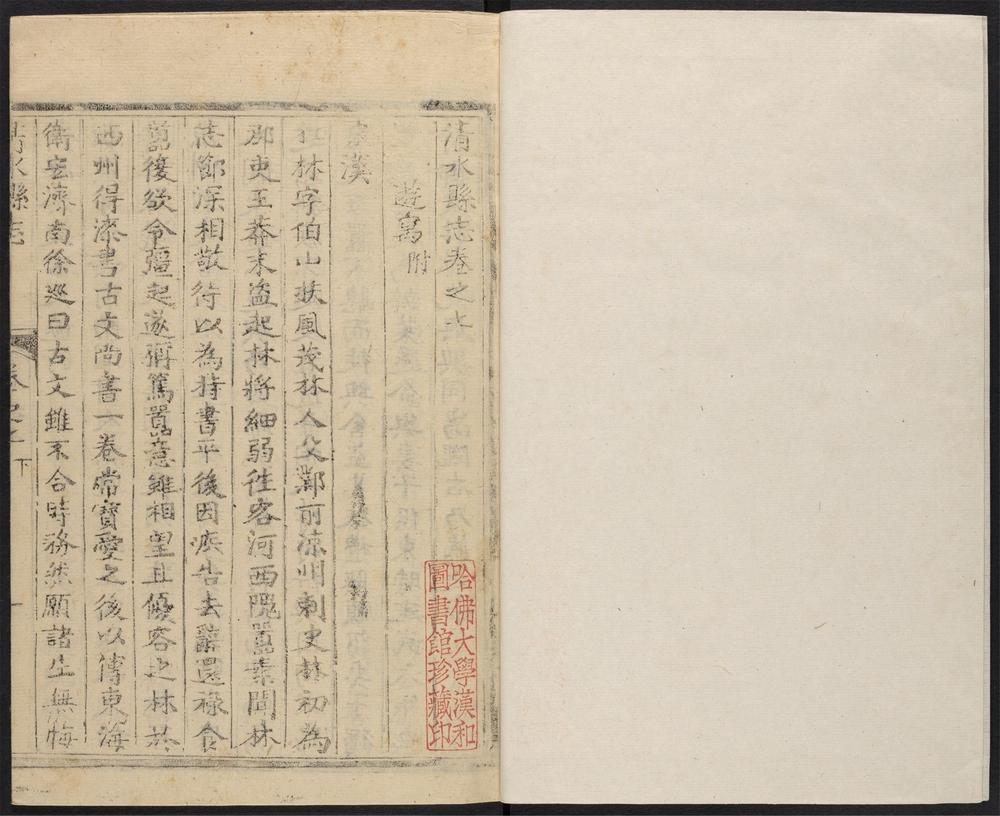 清水縣志卷之十
遊寓附
漢
杜林字伯山扶風茂林人父鄴前涼州刺史林初為
郡吏王莽末盜起林將細弱徃客河西隗囂素聞林
志節深相敬待以為持書平後因疾告去辭還祿食
囂復欲令彊起遂稱篤囂意雖相望且優容之林於
西州得漆書古文尚書一卷常寶愛之後以傳東海
衛宏濟南徐巡曰古文雖不合時務然願諸生無悔
清水縣志
卷之
下
一
哈佛大學漢和
圖書館珍藏印